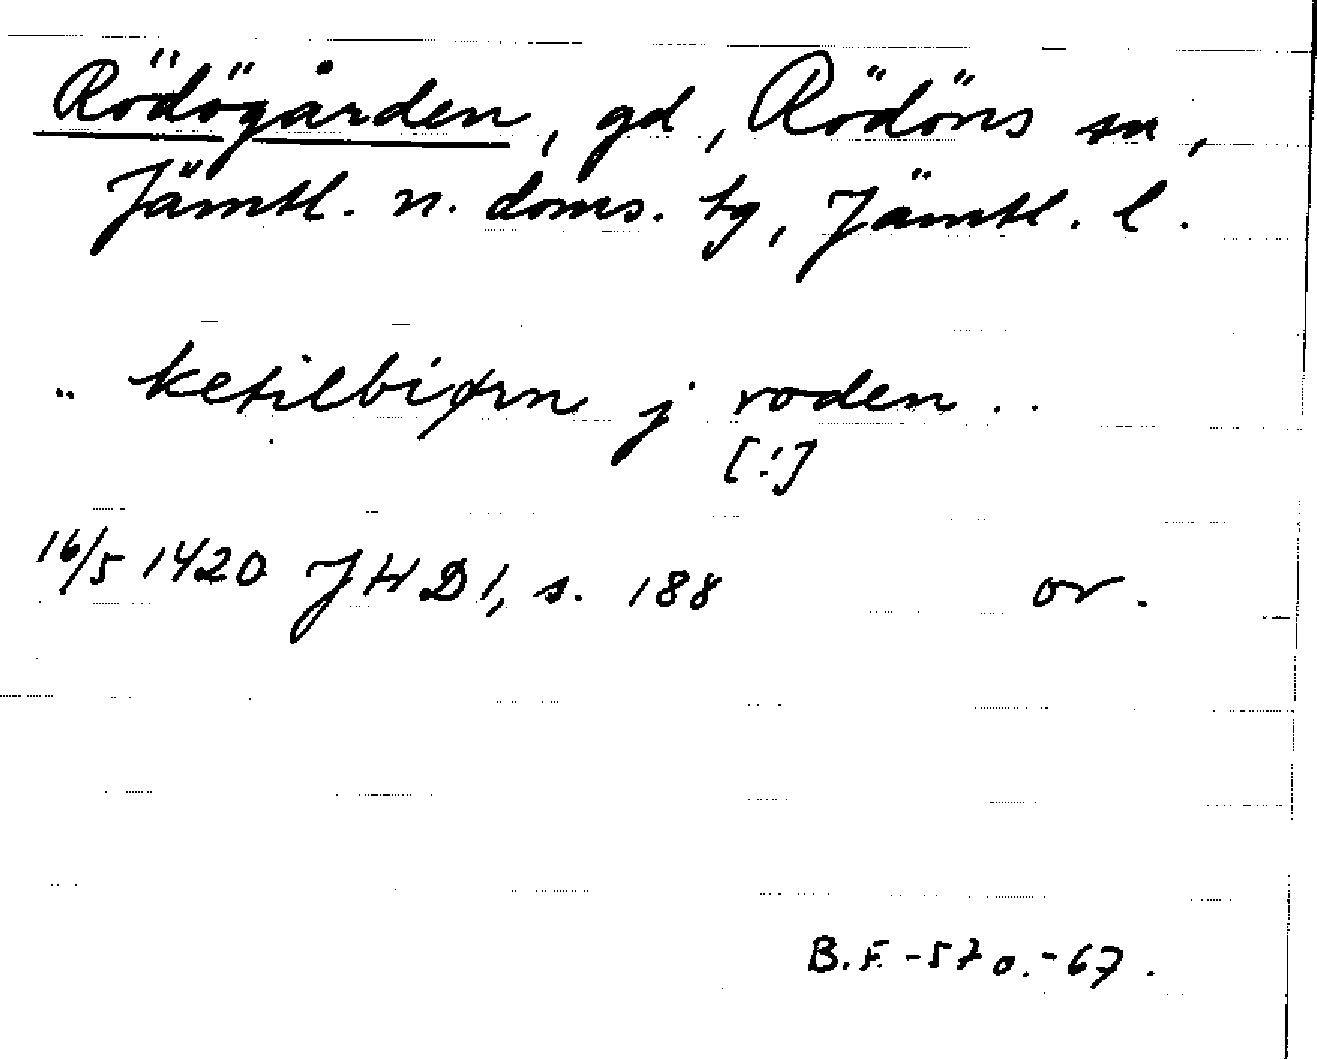 Rödögården, gd, Rödöns sn,
Jämtl. n. doms. tg, Jämtl. l.
.. ketilbiørn j roden ..
[!]
16/5 1420 JHD 1, s. 188 or.
B.E -57 o. -67.